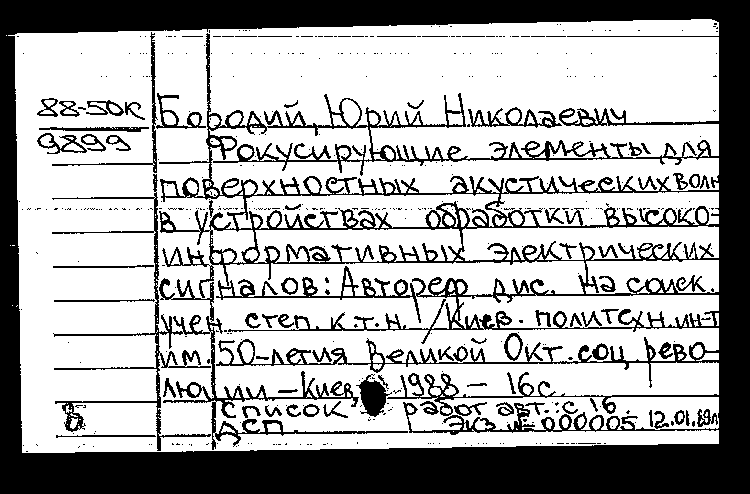 88-50к Бородий, Юрий Николаевич
9899 Фокусирующие элементы для
поверхностных акустических волн
в устройствах обработки высоко-
информативных электрических
сигналов: Автореф. дис. на соиск.
учен. степ. к.т.н. / Киев. политехн. ин-т
им. 50-летия Великой Окт. соц. рево-
люции - Киев, 1988. - 16 с.
Список работ авт.: с. 16
ДСП. Экз № 000005 12.01.89